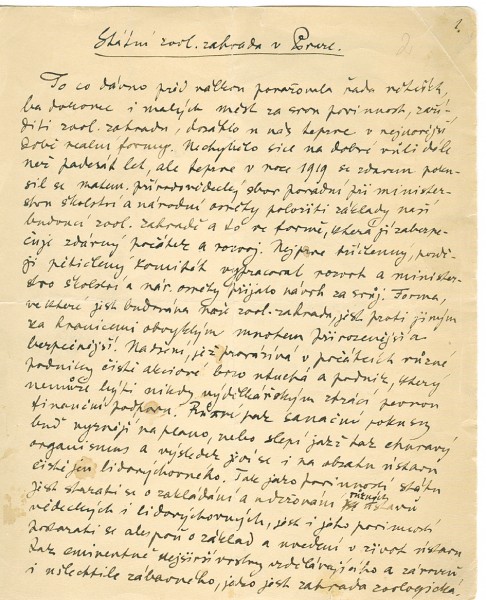 1.
Státní zool. zahrada v Praze.
To co dávno před válkou považovala řada větších,
ba dokonce i malých měst za svou povinnost, zaří-
diti zool. zahradu, dosáhlo u nás teprve v nejnovější
době reální formy. Nechybělo sice na dobré vůli déle
než padesát let, ale teprve v roce 1919 se zdarem poku-
sil se matem. přírodovědecký sbor poradní při minister-
stvu školství a národní osvěty položiti základy naší
budoucí zool. zahradě a to ve formě, která jí zabezpe-
čuje zdárný počátek a rozvoj. Nejprve užší, poz-
ději pětičlenný komitét vypracoval rozvrh a minister-
stvo školství a nár. osvěty přijalo návrh za svůj. Forma,
ve které jest budována naše zool. zahrada, jest proti jiným
za hranicemi obvyklým mnohem přirozenější a
bezpečnější. Nadšení, jež provází v počátcích různé
podniky čistě akciové brzo utuchá a podnik, který
nemůže býti nikdy výdělkářským ztrácí pevnou
finanční podporu. Různé pak sanační pokusy
buď vyznějí na plano, nebo slepí jaksi tak churavý
organismus a výsledek jeví se i na obratu ústavu
čistě jen lidovýchovného. Tak jako povinností státu
jest starati se o zakládání a udržování různých ústavů
vědeckých i lidovýchovných, jest i jeho povinností
postarati se alespoň o základ a uvedení v život ústavu
tak eminentně nejširší vrstvy vzdělávajícího a zároveň
i ušlechtile zábavného, jako jest zahrada zoologická.